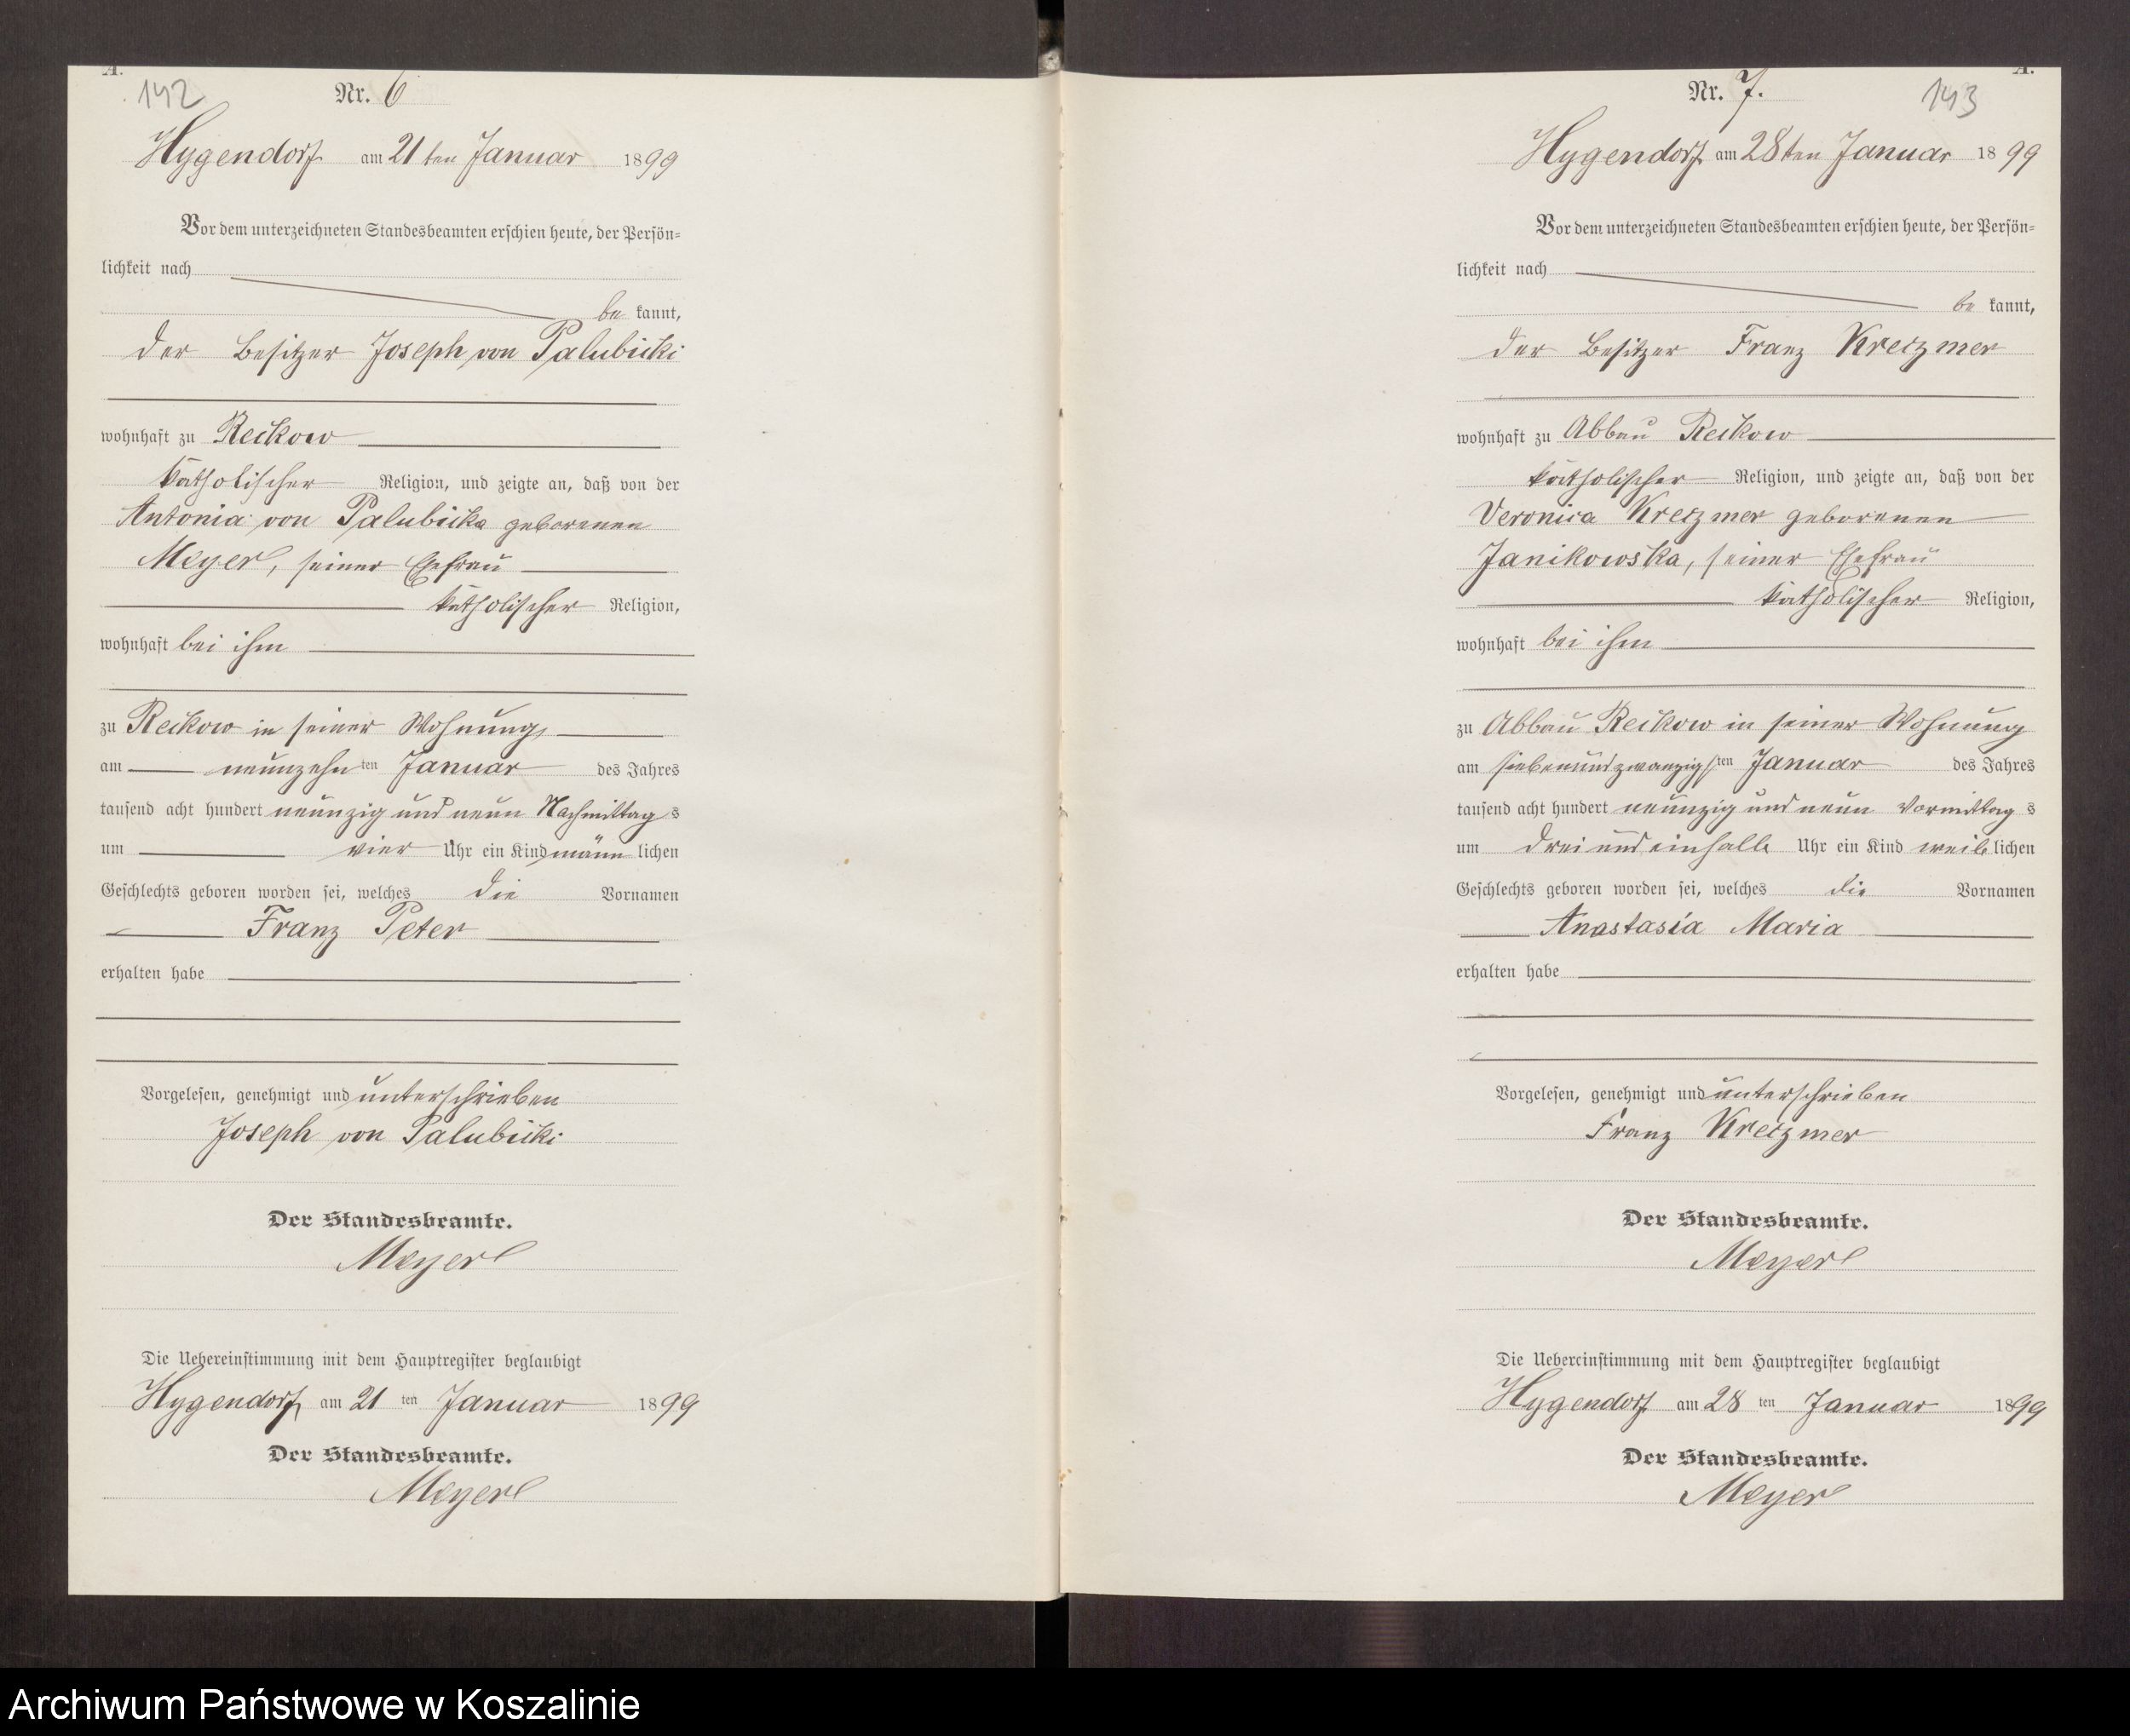 A.
142
Nr. 6
Hygendorf am 21ten Januar 1899
Vor dem unterzeichneten Standesbeamten erschien heute, der Persön=
lichkeit nach
be kannt,
der Besitzer Joseph von Palubicki
wohnhaft zu Reckow
katholischer Religion, und zeigte an, daß von der
Antonia von Palubicka geborenen
Meyer, seiner Ehefrau
katholischer Religion,
wohnhaft bei ihm
zu Reckow in seiner Wohnung,
am neunzehn ten Januar des Jahres
tausend acht hundert neunzig und neun Nachmittag s
um vier Uhr ein Kind männ lichen
Geschlechts geboren worden sei, welches die Vornamen
Franz Peter
erhalten habe
Vorgelesen, genehmigt und unterschrieben
Joseph von Palubicki
Der Standesbeamte.
Meyer
Die Uebereinstimmung mit dem Hauptregister beglaubigt
Hygendorf, am 21 ten Januar 1899
Der Standesbeamte.
Meyer
A.
Nr. 7.
143
Hygendorf am 28ten Januar 1899
Vor dem unterzeichneten Standesbeamten erschien heute, der Persön=
lichkeit nach
be kannt,
der Besitzer Franz Kreczmer
wohnhaft zu Abbau Reckow
katholischer Religion, und zeigte an, daß von der
Veronica Kreczmer geborenen
Janikowska, seiner Ehefrau
katholischer Religion,
wohnhaft bei ihm
zu Abbau Reckow in seiner Wohnung
am siebenundzwanzigsten Januar des Jahres
tausend acht hundert neunzig und neun Vormittag s
um drei und einhalb Uhr ein Kind weib lichen
Geschlechts geboren worden sei, welches die Vornamen
Anastasia Maria
erhalten habe
Vorgelesen, genehmigt und unterschrieben
Franz Kreczmer
Der Standesbeamte.
Meyer
Die Uebereinstimmung mit dem Hauptregister beglaubigt
Hygendorf am 28 ten Januar 1899
Der Standesbeamte.
Meyer
Archiwum Państwowe w Koszalinie